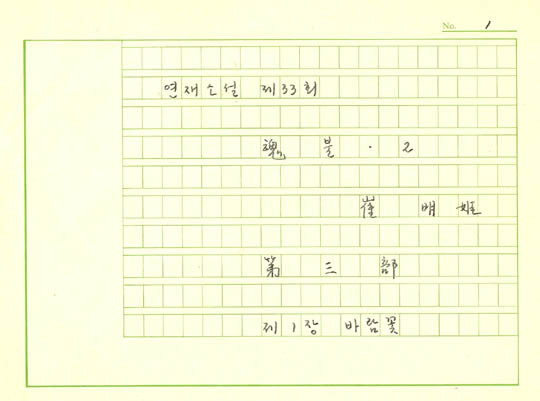 No. 1
연재소설 제33회
魂불·2
崔明姬
第三部
제1장 바람꽃